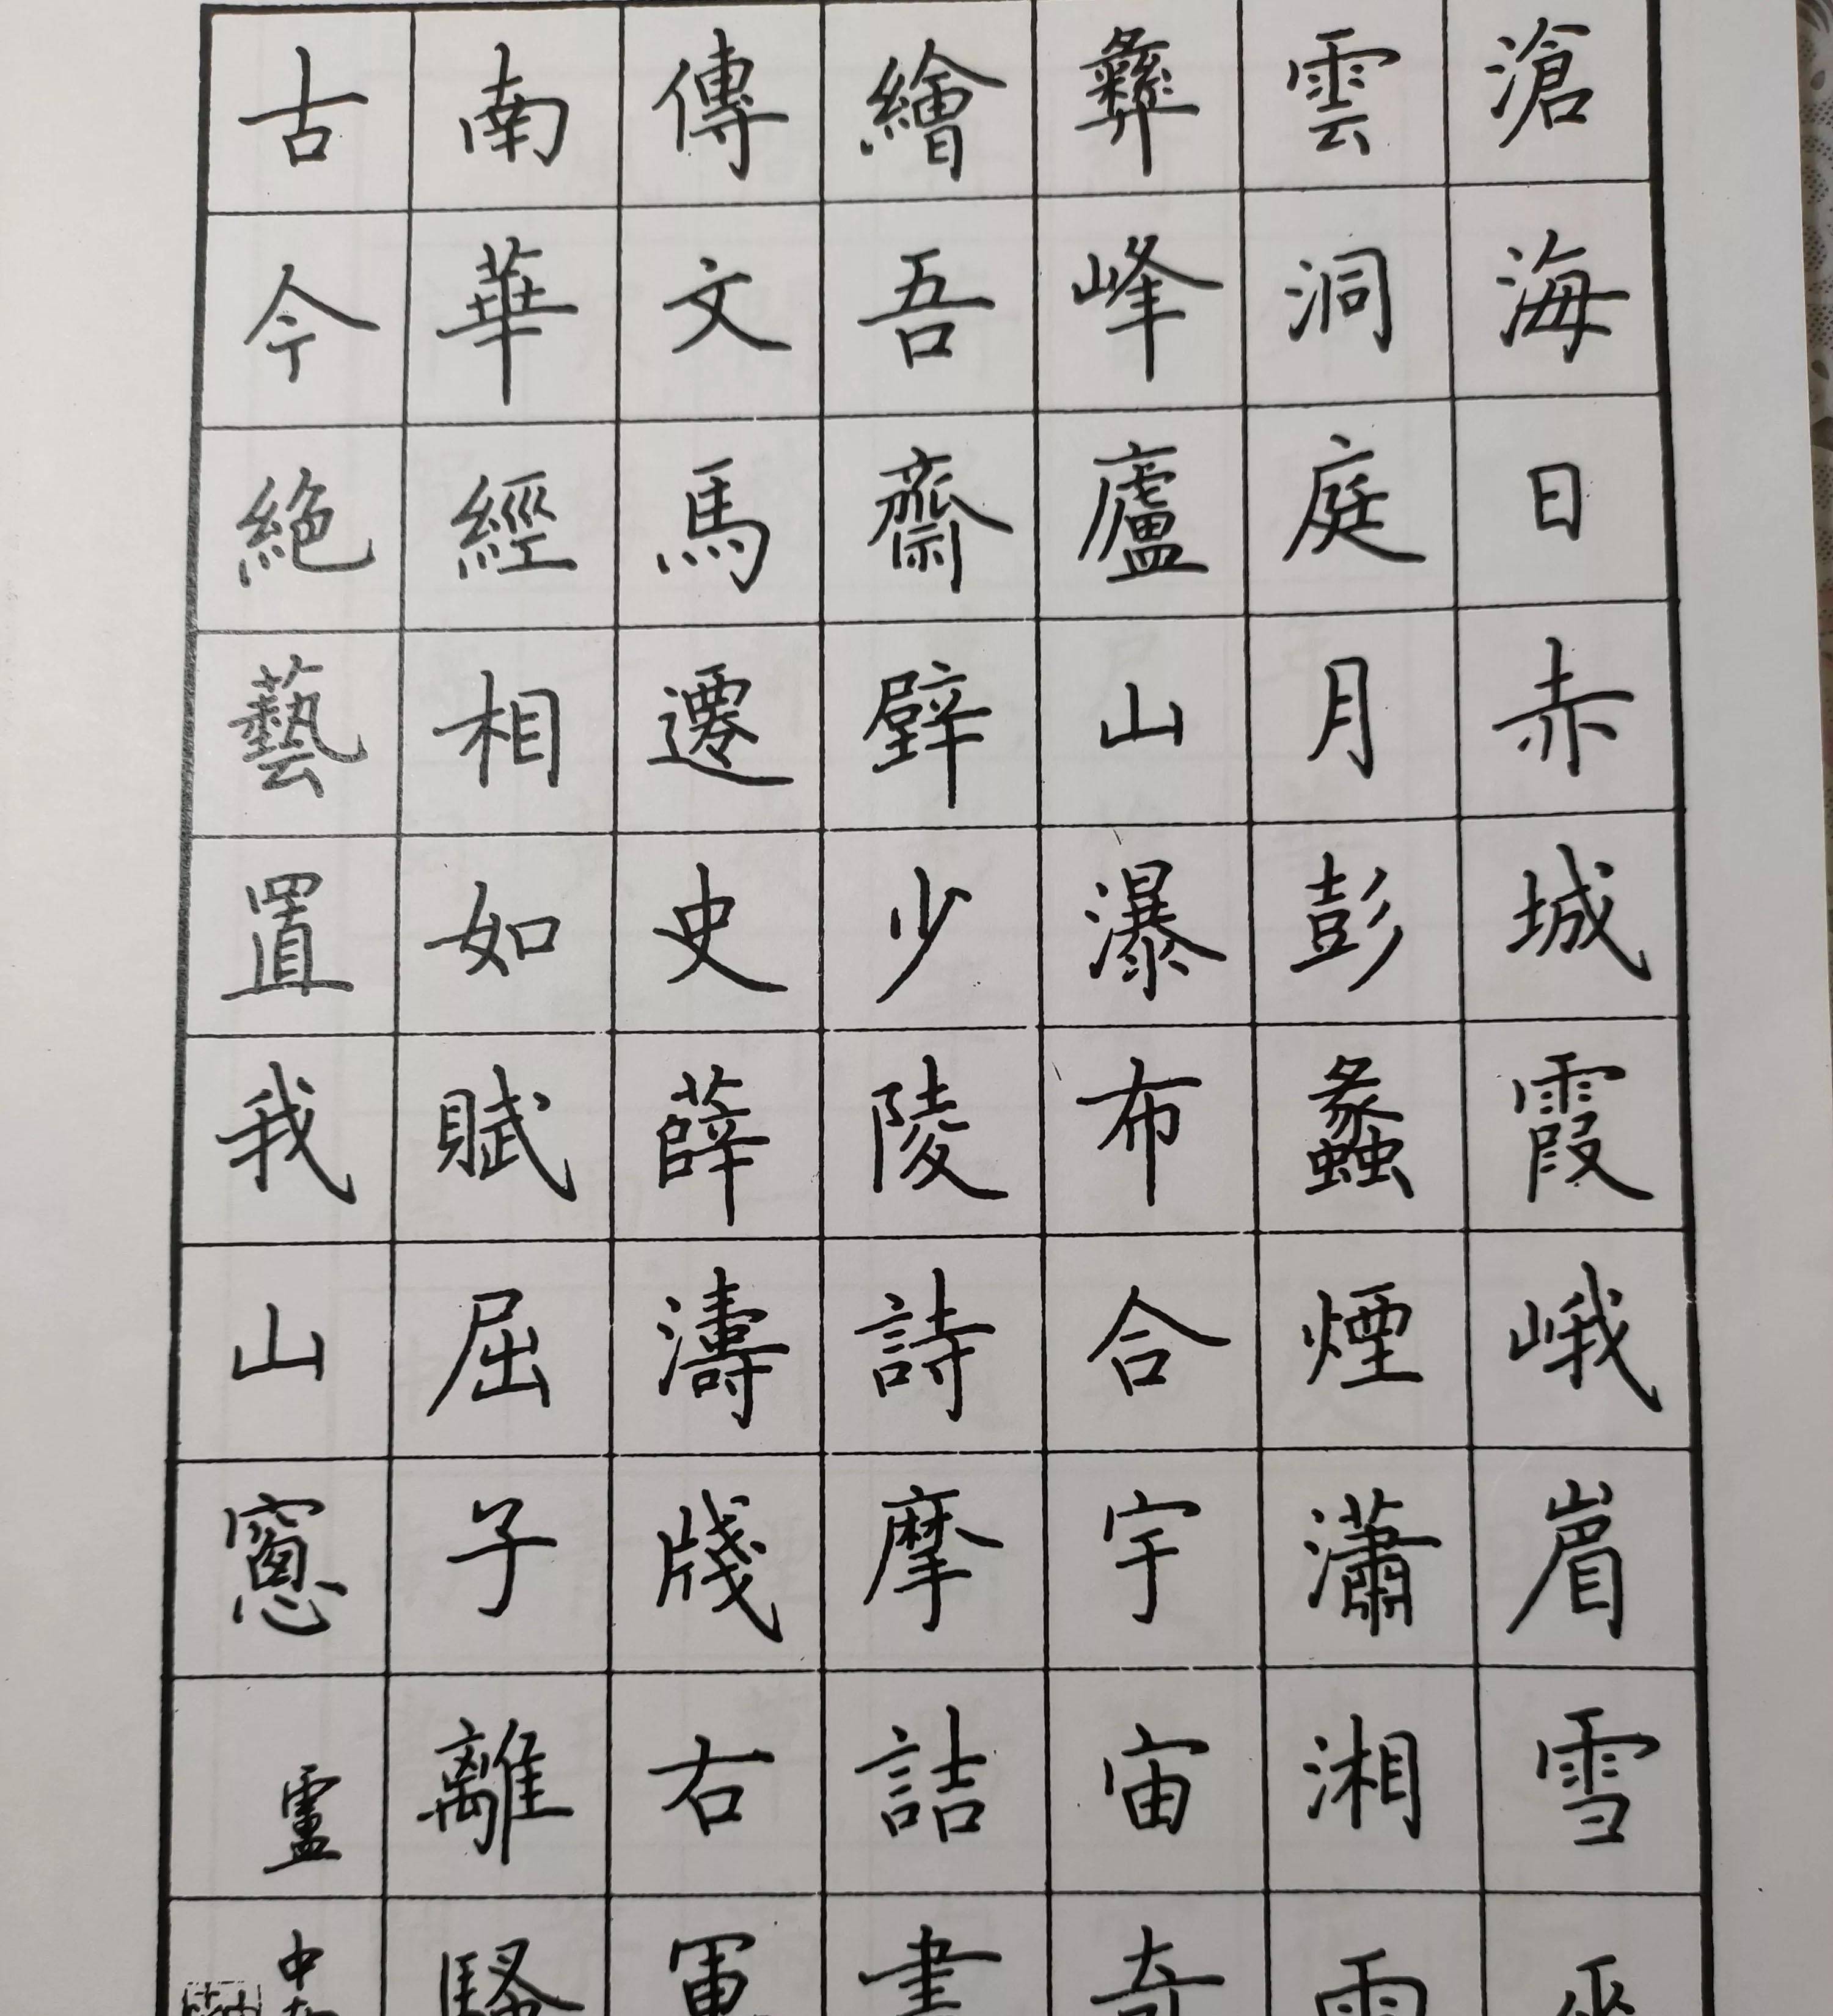 滄海日赤城霞峨眉雪巫
雲洞庭月彭蠡煙瀟湘雨
彝峰廬山瀑布合宇宙奇
繪吾齋壁少陵詩摩詰畫
傳文馬遷史薛濤牋右軍
南華經相如賦屈子離騷
古今絕藝置我山窻
靈中